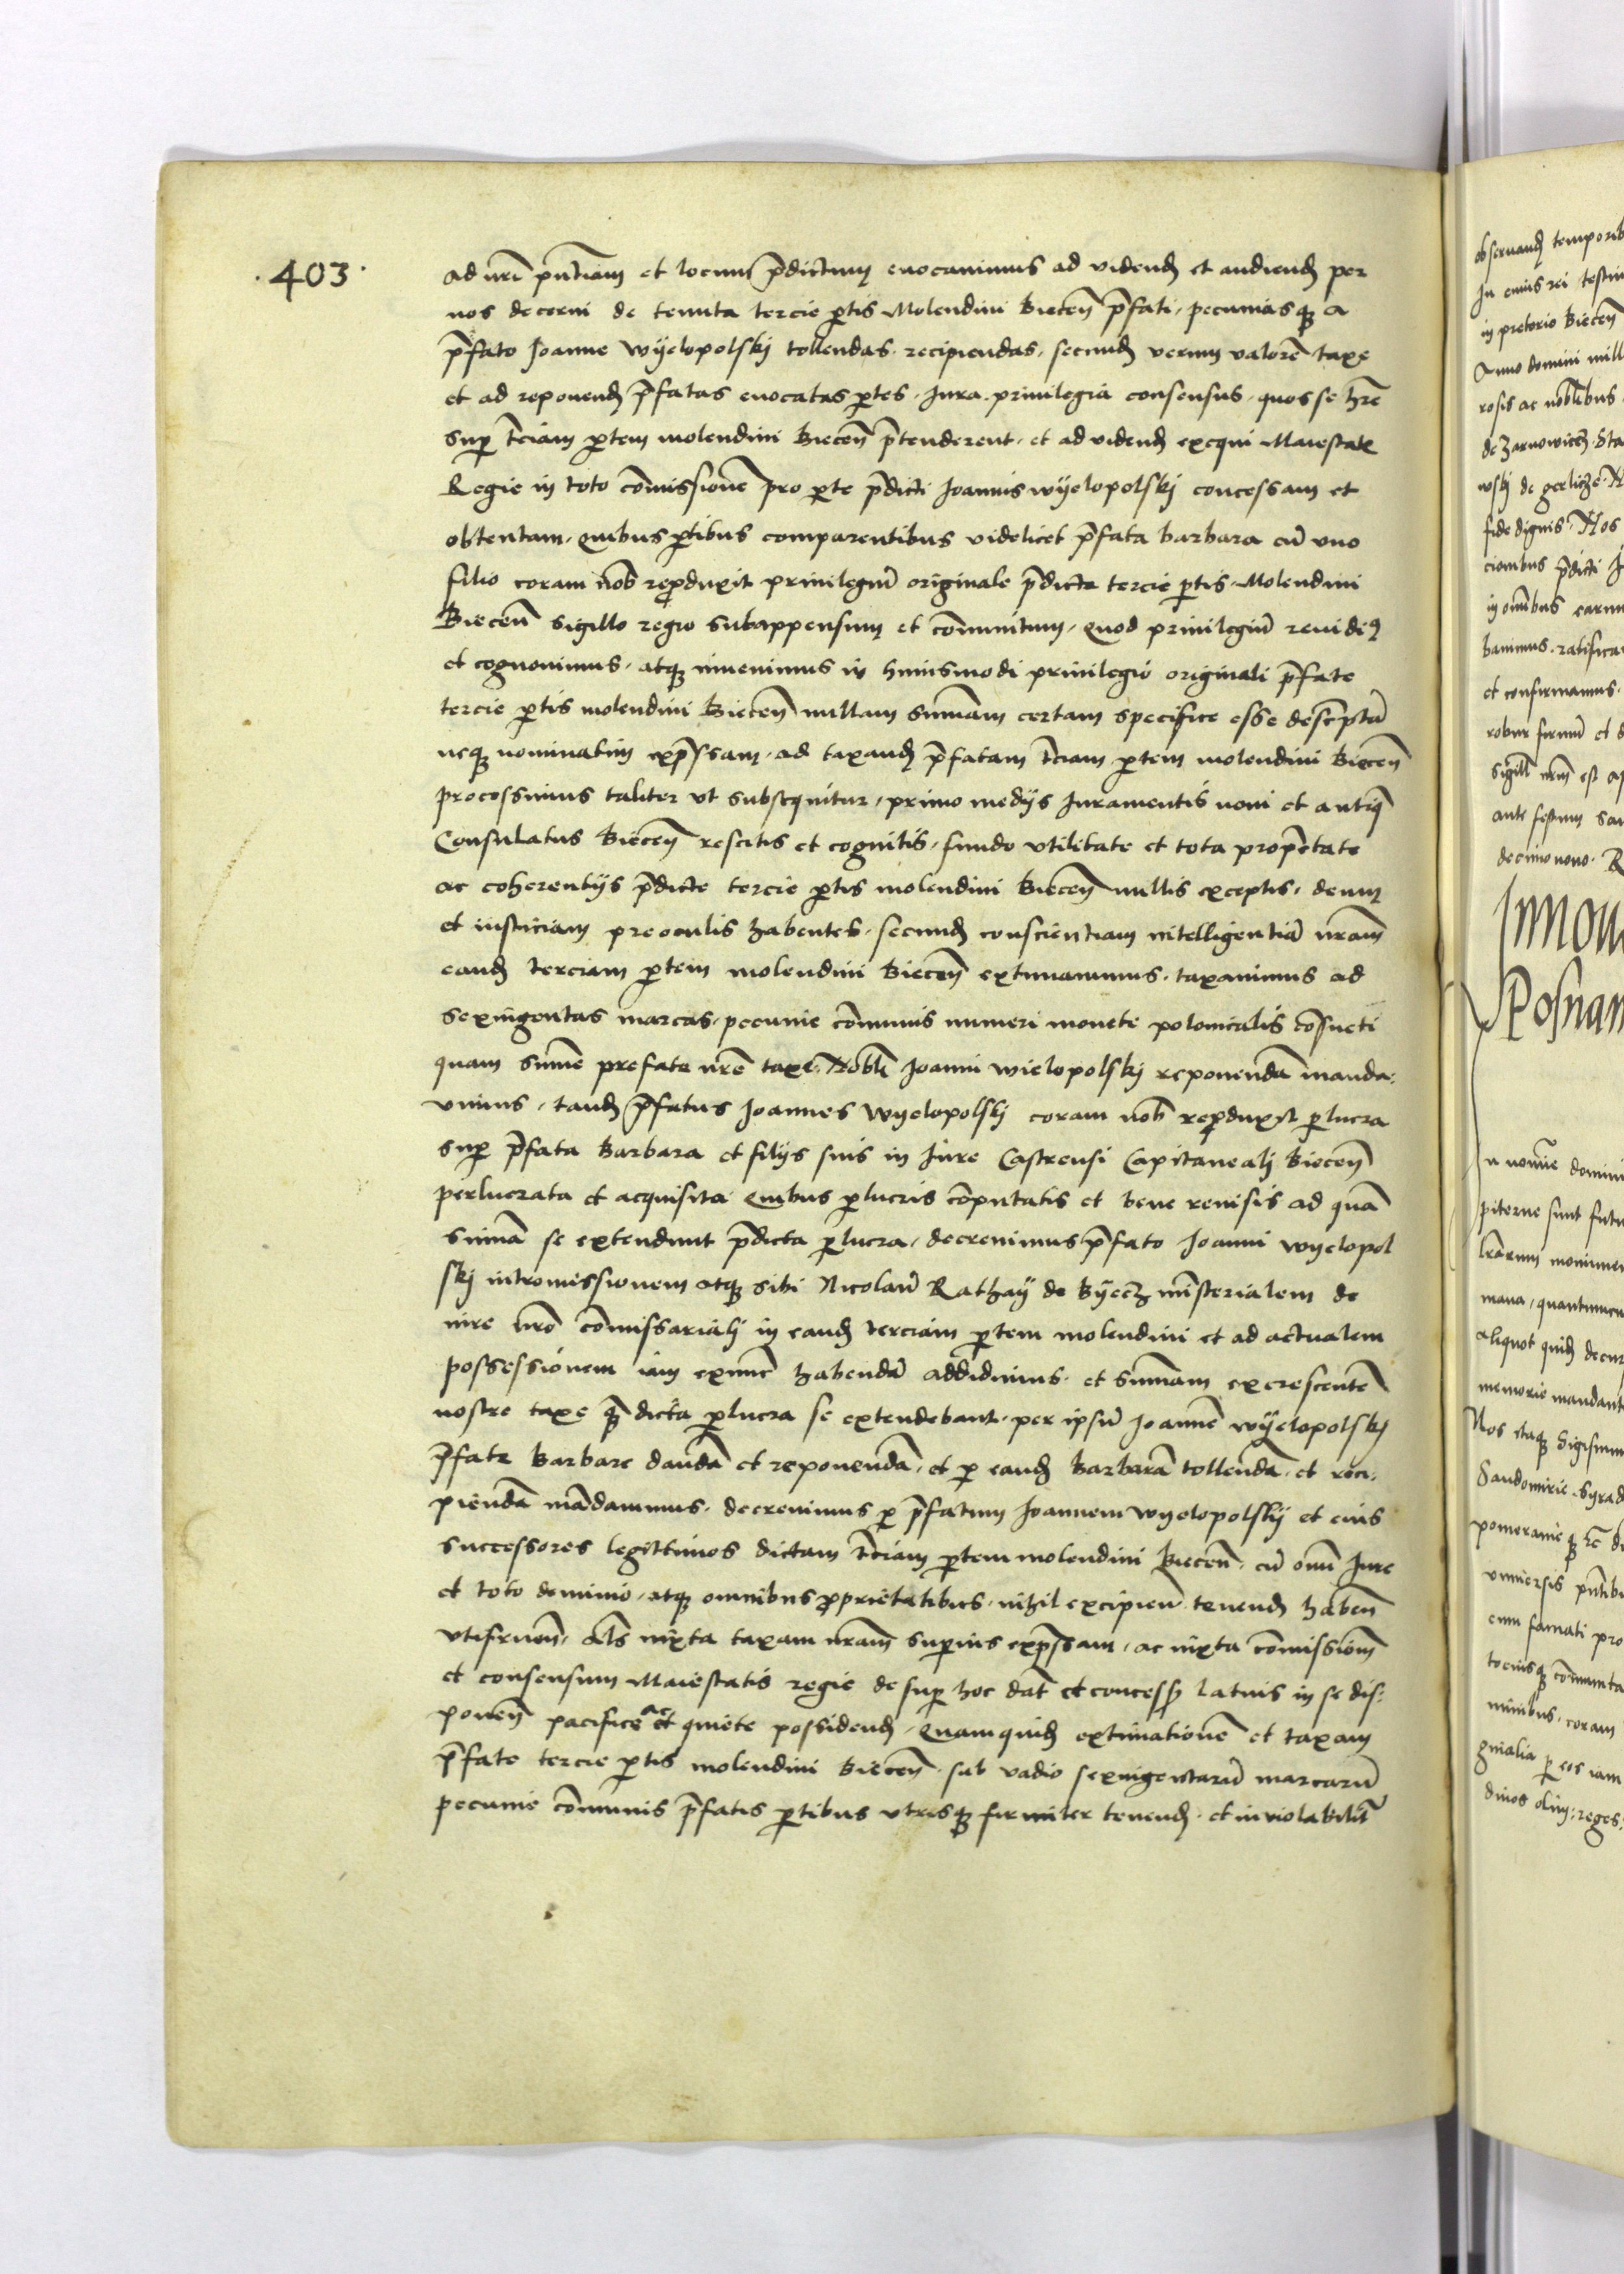 ·403·
ad nr̄i pn̄tiam et locum p̄dictum euocauimus ad vidend̄ et audiend̄ per
nos decerni de tenuta tercie ꝑtis Molendini Biecen̄ p̄fati, pecuniasqꝫ a
p̄fato Joanne Wyelopolskj tollendas recipiendas, secund̄ verum valorē taxe
et ad reponend̄ p̄fatas euocatas ꝑtes, Jura priuilegia consensus, quos se hr̄e
suꝑ tr̄ciam ꝑtem molendini Biecen̄ p̄tenderent, et ad vidend̄ exequi Maiestate
Regie in toto com̄issionē pro ꝑte p̄dicti Joannis wyelopolskj concessam et
obtentam. Quibus ꝑtibus comparentibus videlicet p̄fata barbara cū vno
filio coram nob̄ reꝓduxit priuilegiū originale p̄dicte tercie ꝑtis Molendini
Biecen̄ sigillo regio subappensum et com̄unitum, quod priuilegiū reuidiꝰ
et cognouimus, atqꝫ inuenimus in huiusmodi priuilegio originali p̄fate
tercie ꝑtis molendini Biecen̄ nullam sum̄am certam specifice esse descriptā
neqꝫ nominatim exp̄ssam, ad taxand̄ p̄fatam tr̄ciam ꝑtem molendini Biecen̄
processimus taliter vt subsequitur, primo medijs Juramentis noui et antiq̄
Consulatus Biecen̄ rescitis et cognitis, fundo vtilitate et tota proprietate
ac coherentijs p̄dicte tercie ꝑtis molendini Biecen̄ nullis exceptis, deum
et iusticiam pre oculis habentes, secund̄ conscientiam intelligentiā nr̄am
eand̄ terciam ꝑtem molendini Biecen̄ extimauimus, taxauimus ad
sexingentas marcas, pecunie com̄unis numeri monete polonicalis cōsueti
quam sum̄e prefate nr̄e taxe Nobli Joanni wielopolskj reponendā manda-
uimus, tand̄ p̄fatus Joannes Wyelopolskj coram nob̄ reꝓduxit ꝑlucra
suꝑ p̄fata Barbara et filijs suis in Jure Castrensi Capitanealj Biecen̄
perlucrata et acquisita Quibus ꝑlucris cōputatis et bene reuisis ad quā
sum̄ā se extendunt p̄dicta ꝑlucra, decreuimus p̄fato Joanni wyelopol
skj intromissionem atqꝫ sibi Nicolaū Rathay de Byecz mīsterialem de
iure nr̄o com̄issarialj in eand̄ terciam ꝑtem molendini et ad actualem
possessionem iam exnunc habendā addidimus. et sum̄am excrescentē
nostre taxe qꝫ dicta ꝑlucra se extendebant, per ipsū Joannē wyelopolskj
p̄fate Barbare dandā et reponendā, et ꝑ eand̄ Barbarā tollendā et reci-
piendā mādauimus. decreuimus ꝑ p̄fatum Joannem Wyelopolskj et eius
successores legittimos dictam tr̄ciam ꝑtem molendini Biecen̄ cū om̄i Jure
et toto dominio, atqꝫ omnibus ꝓprietatibus, nihil excipien̄ tenend̄ haben̄
vtifruen̄, als̄ iuxta taxam nr̄am superius exp̄ssam, ac iuxta com̄issionē
et consensum Maiestatis regie desuꝑ hoc dat̄ et concess̄ latius in se dis-
ponen̄ pacifice ac et quiete possidend̄. Quamquid̄ extimationē et taxam
p̄fate tercie ꝑtis molendini Biecen̄ sub vadio sexingentarū marcarū
pecunie com̄unis p̄fatis ꝑtibus vtrisqꝫ firmiter tenend̄ et inuiolabilit̄
obseruand̄ temporib
In cuius rei testim
in pretorio Biecen̄
Anno domini mill
rosis ac nobilibus
de Zarnowiecz Sta
wskj de gorlicze
fide dignis. Nos
cionibus p̄dicti
in om̄ibus earum
bauimus ratifica
et confirmamus
robur firmū et d
Sigill nr̄m est ap
ante festum san
decimo nono. R
Posnan
In noīe domini
piterne sunt futu
lr̄arum monimen
mana, quantumcu
aliquot quid̄ decur
memorie mandant
Nos itaqꝫ Sigismun
Sandomirie Syrad
pomeranieqꝫ etc̄ d
vniuersis pn̄tibu
cum famati pro
tociusqꝫ com̄unita
minibus, coram
ginalia ꝑ eos iam
diuos olim reges